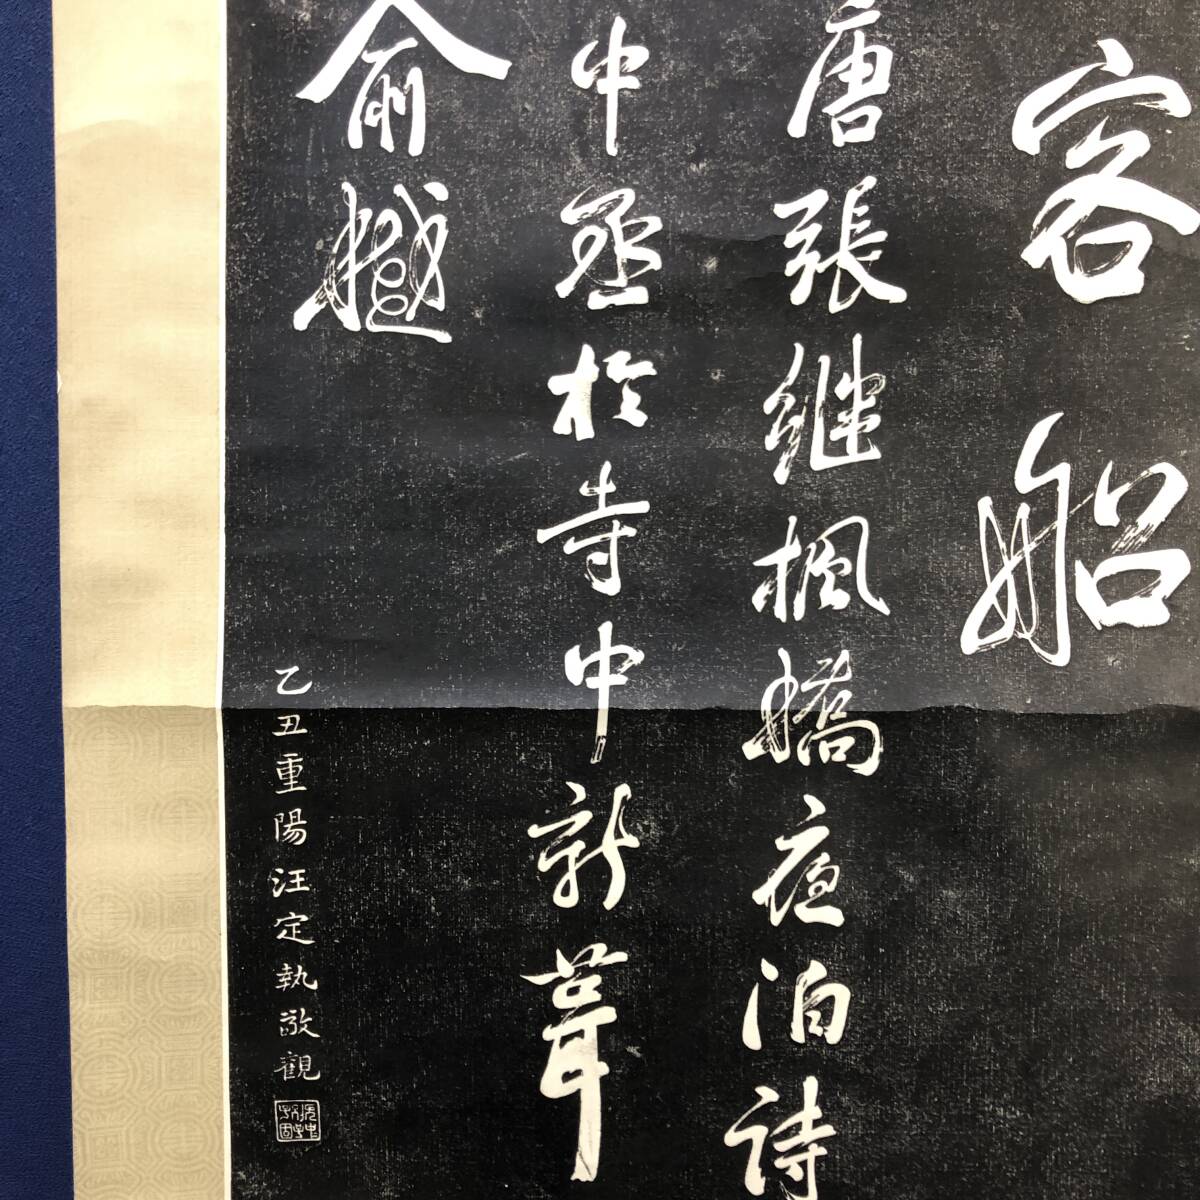 客船
唐張继楓橋夜泊詩
中丞於寺中新葺
俞樾
乙丑重陽汪定執敬觀